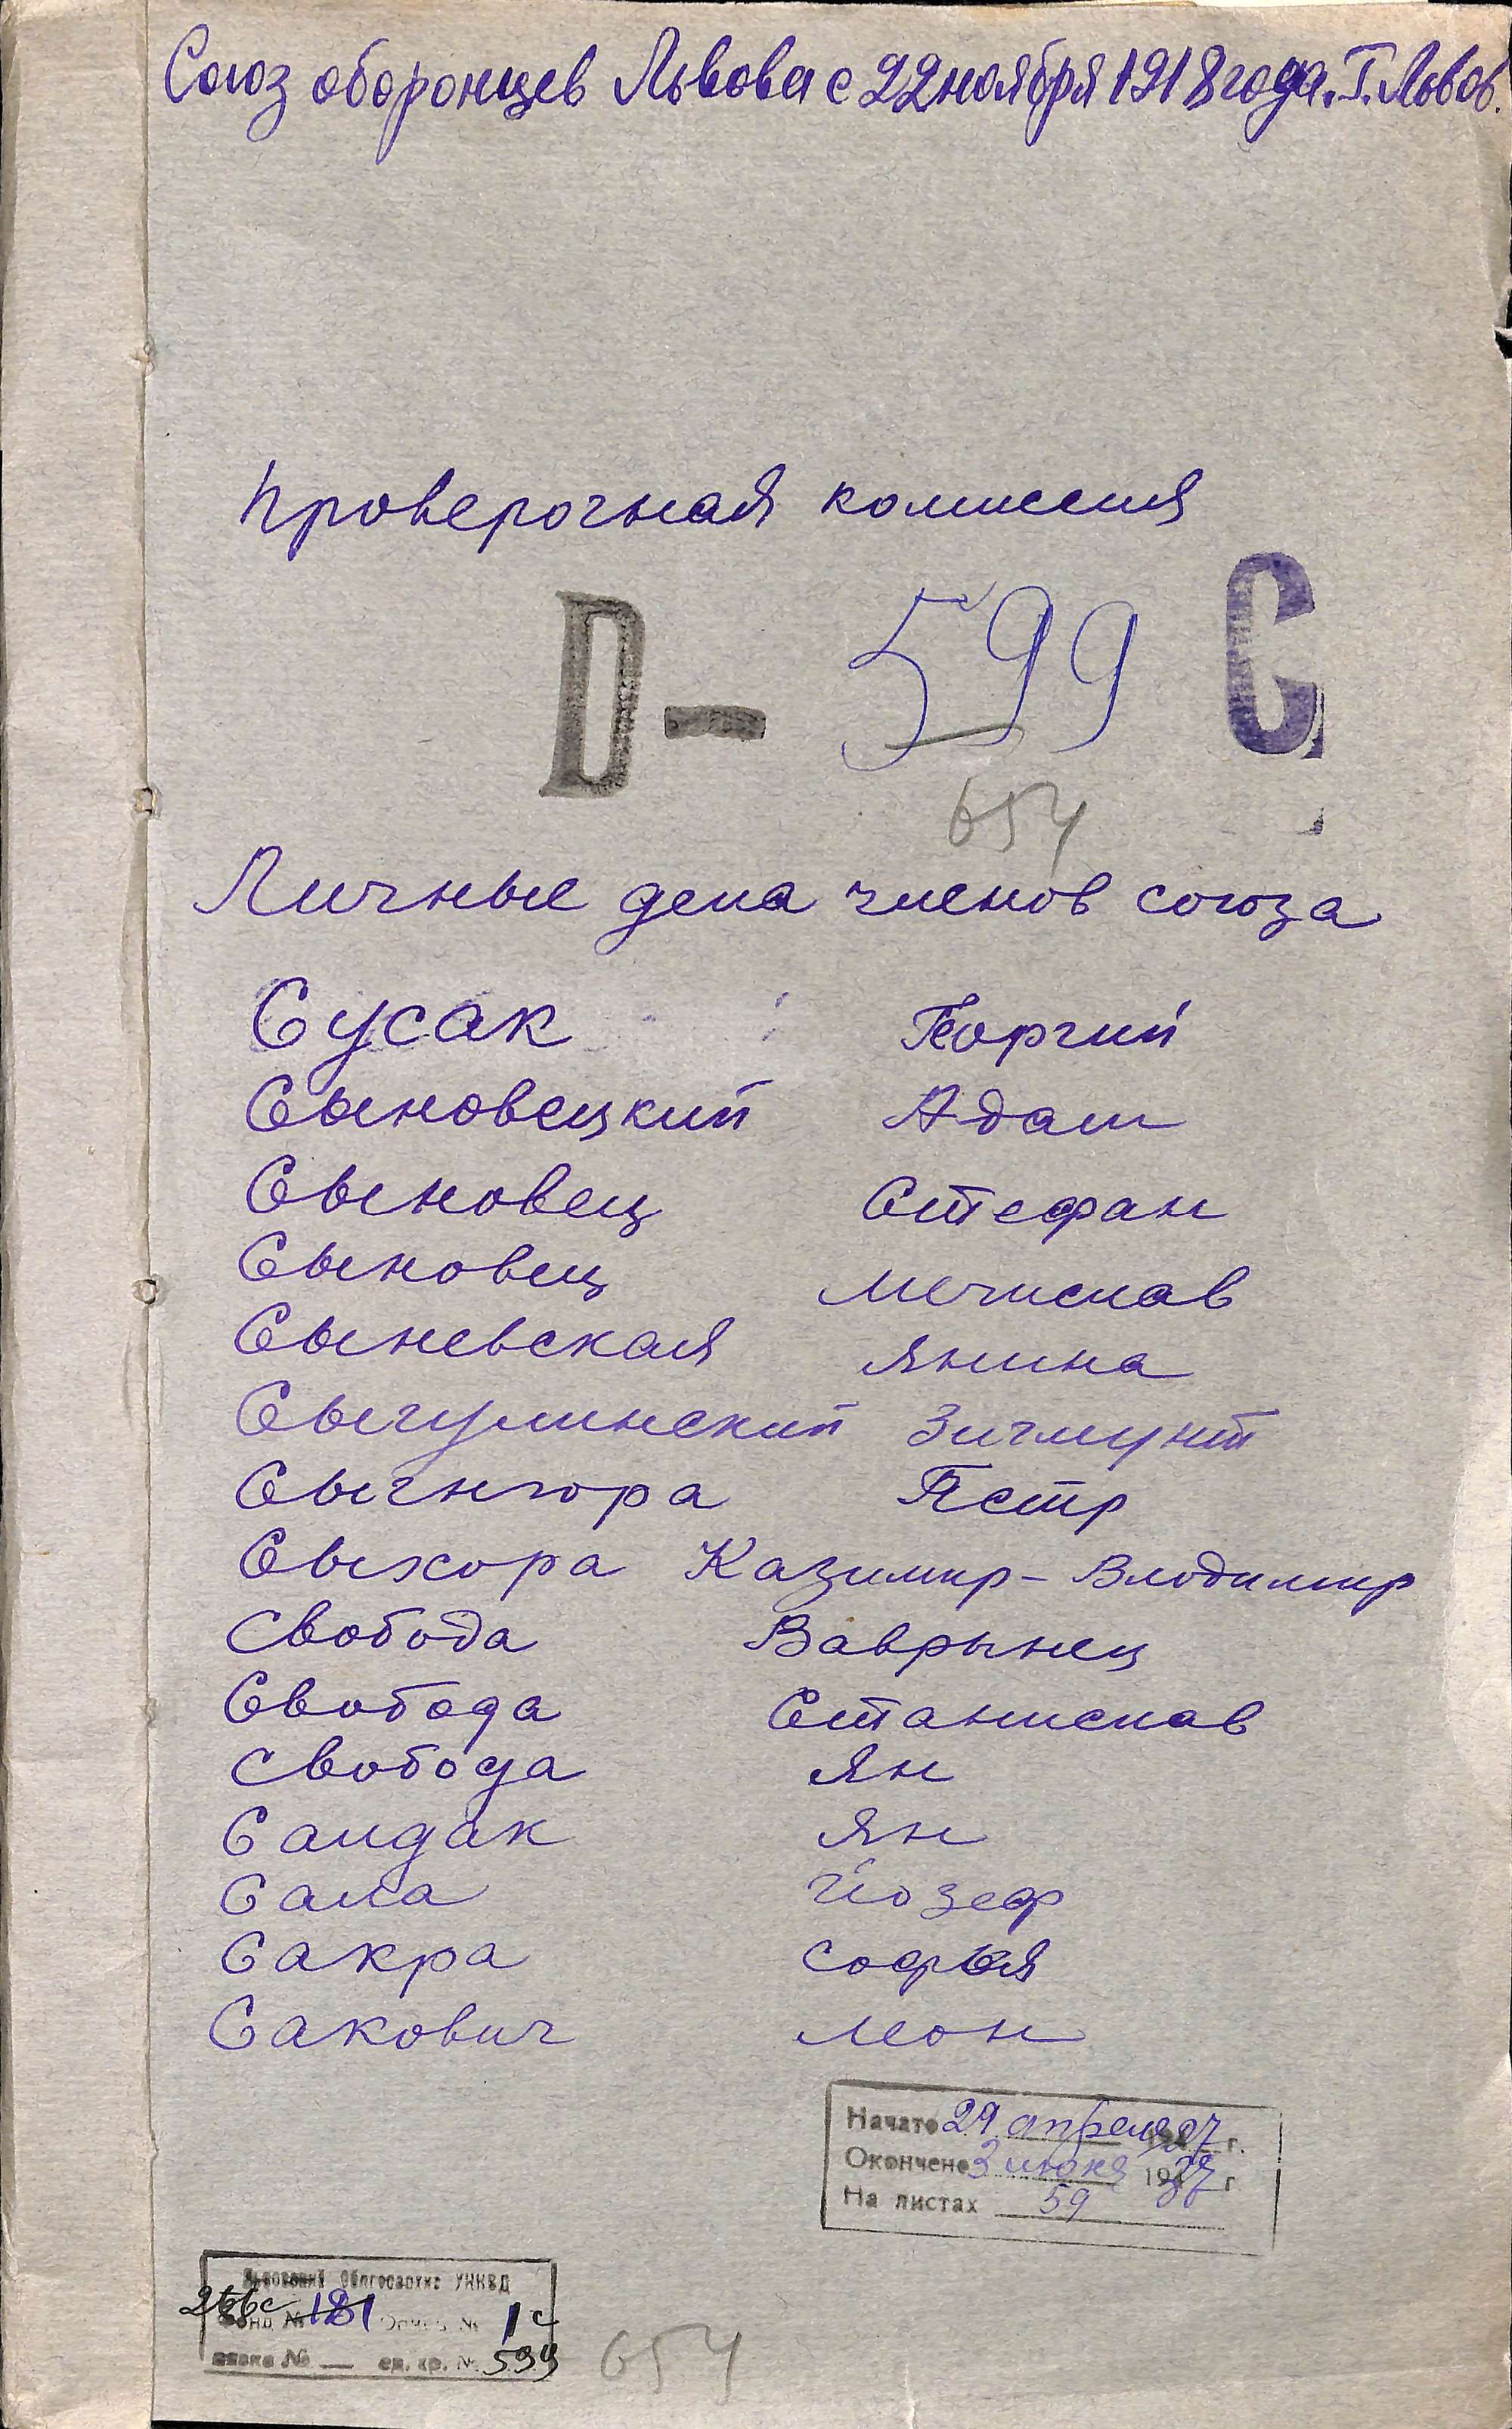 Союз оборонцев Львова с 22 ноября 1918 года. Г. Львов.
Проверочная комиссия
D- 599 С
654
Личные дела членов союза
Сусак Георгий
Сыновецкий Адам
Сыновец Стефан
Сыновец Мечислав
Сыневская Янина
Сыгулинский Зигмунт
Сыгнюра Петр
Сыхора Казимир-Влодимир
Свобода Ваврынец
Свобода Станислав
Свобода Ян
Сандак Ян
Сала Йозеф
Сакра Софья
Сакович Леон
Начато 29 апреля 1927 г.
Окончено 3 июня 19 г
На листах 59
Львовский Облгосархив УНКВД
266с
Фонд № 181 Опись № 1с
связка № — ед. хр. № 599
654